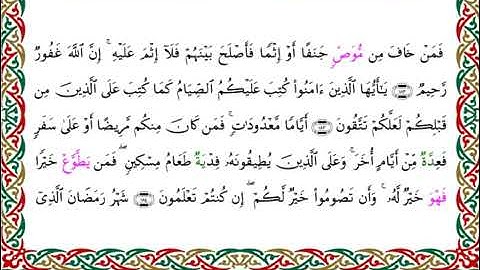 فَمَنْ خَافَ مِن مُّوَصٍّ جَنَفًا أَوْ إِثْمًا فَأَصْلَحَ بَيْنَهُمْ فَلَآ إِثْمَ عَلَيْهِ ۚ إِنَّ اللَّهَ غَفُورٌ
رَّحِيمٌ يَـٰٓأَيُّهَا الَّذِينَ ءَامَنُواْ كُتِبَ عَلَيْكُمُ الصِّيَامُ كَمَا كُتِبَ عَلَى الَّذِينَ مِن
قَبْلِكُمْ لَعَلَّكُمْ تَتَّقُونَ أَيَّامًا مَّعْدُودَاتٍ ۚ فَمَن كَانَ مِنكُم مَّرِيضًا أَوْ عَلَىٰ سَفَرٍ
فَعِدَّةٌ مِّنْ أَيَّامٍ أُخَرَ ۚ وَعَلَى الَّذِينَ يُطِيقُونَهُۥ فِدْيَةٌ طَعَامُ مِسْكِينٍ ۖ فَمَن يَطَّوَّعْ خَيْرًا
فَهْوَ خَيْرٌ لَّهُۥ ۚ وَأَن تَصُومُواْ خَيْرٌ لَّكُمْ ۖ إِن كُنتُمْ تَعْلَمُونَ شَهْرُ رَمَضَانَ الَّذِىٓ